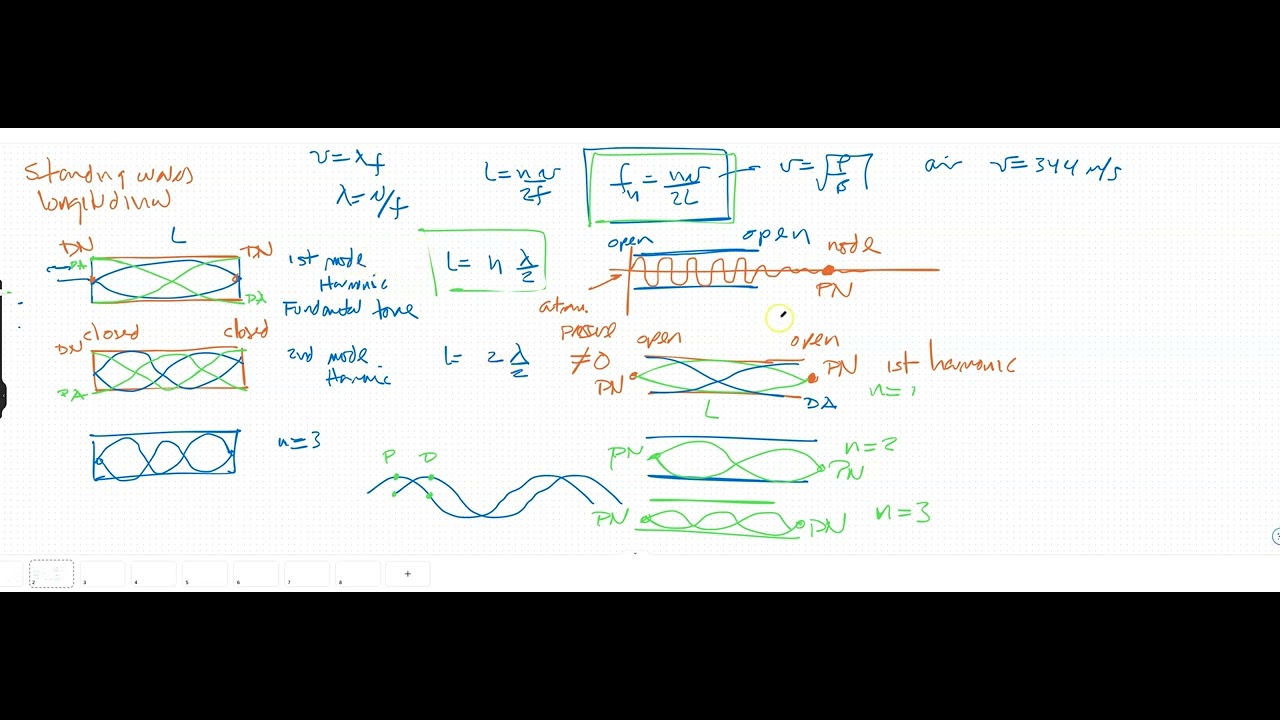 Standing waves
longitudinal
v=λf
λ=v/f
L=nv/2f
f_n = nv/2L
v=√
air v=344 m/s
L
DN DN
PA
DA
1st mode
Harmonic
Fundamental tone
L= n λ/2
open open node
PN
atm.
pressure
≠0
closed closed
DN
PA
2nd mode
Harmonic
L= 2 λ/2
open open
PN PN 1st harmonic
L DA n=1
n=3
P D
PN n=2
PN
PN PN n=3
2 3 4 5 6 7 8 +